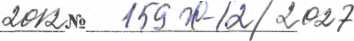 2012 № 159 Н-12/2027